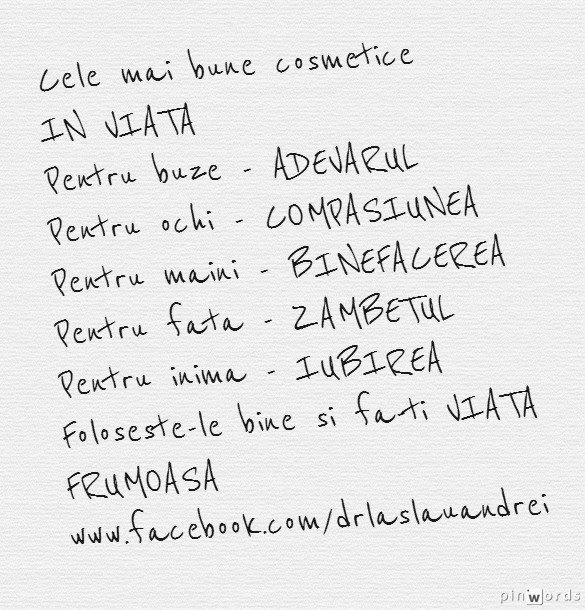 Cele mai bune cosmetice
IN VIATA
Pentru buze - ADEVARUL
Pentru ochi - COMPASIUNEA
Pentru maini - BINEFACEREA
Pentru fata - ZAMBETUL
Pentru inima - IUBIREA
Foloseste-le bine si fa-ti VIATA
FRUMOASA
www.facebook.com/drlaslauandrei
pinwords